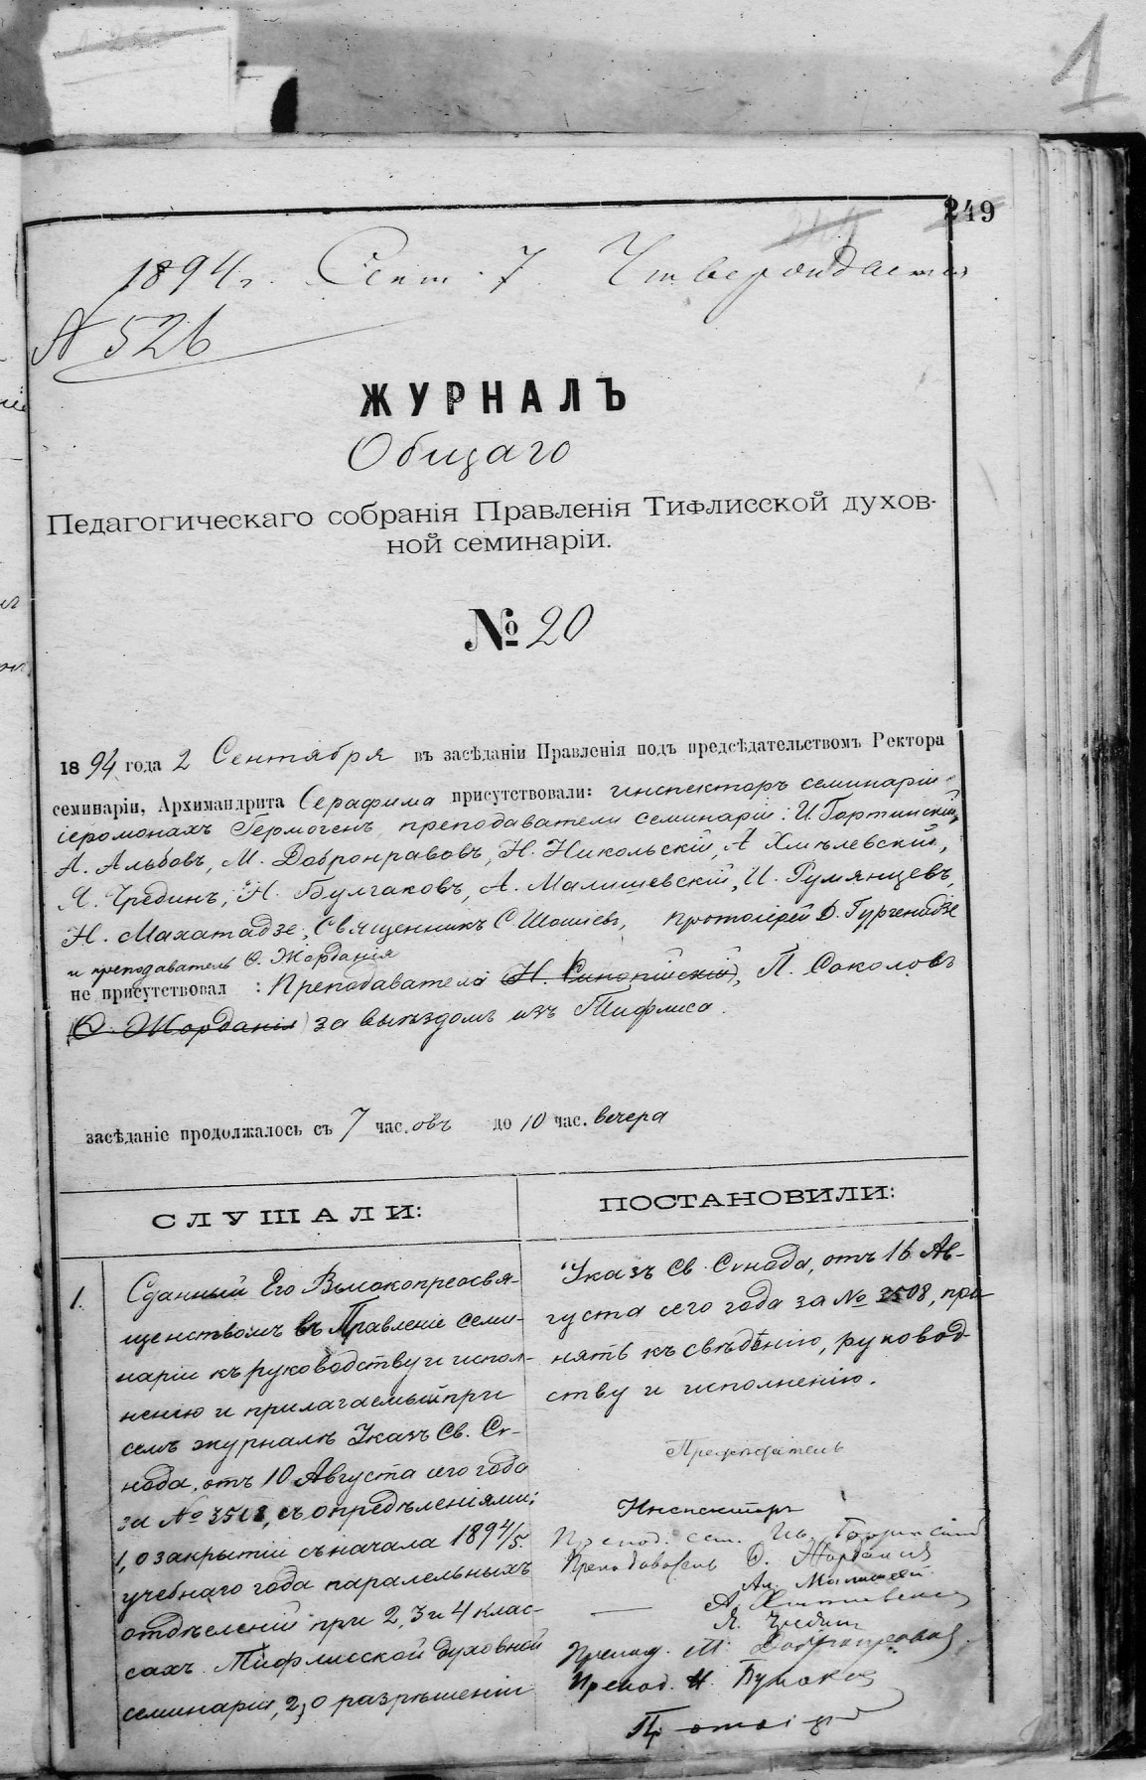 1
249
1894 г. Сент. 7 Утверждается
№ 526
ЖУРНАЛЪ
Общаго
Педагогическаго собранія Правленія Тифлисской духов-
ной семинаріи.
№ 20
1894 года 2 Сентября въ засѣданіи Правленія подъ предсѣдательствомъ Ректора
семинаріи, Архимандрита Серафима присутствовали: инспекторъ семинаріи
іеромонахъ Гермогенъ, преподаватели семинаріи: И. Гортинскій,
А. Альбовъ, М. Добронравовъ, Н. Никольскій, А. Хмѣлевскій,
Я. Чрединъ, Н. Булгаковъ, А. Малишевскій, И. Румянцевъ,
Н. Махатадзе, Священникъ С. Шошіевъ, протоіерей Д. Гургенидзе
и преподаватель Ѳ. Жорданія
не присутствовал : Преподаватели (Н. Синопійскій), П. Соколовъ
(Ѳ. Жорданія) за выѣздомъ изъ Тифлиса.
засѣданіе продолжалось съ 7 час.овъ до 10 час. вечера
СЛУШАЛИ:
ПОСТАНОВИЛИ:
1.
Сданный Его Высокопреосвя-
щенствомъ въ Правленіе семи-
наріи къ руководству и испол-
ненію и прилагаемый при
семъ журналѣ Указъ Св. Сѵ-
нода, отъ 10 Августа сего года
за № 3508, съ опредѣленіями:
1, о закрытіи съ начала 1894/5
учебнаго года паралельныхъ
отдѣленій при 2, 3 и 4 клас-
сахъ Тифлисской духовной
семинаріи, 2, о разрѣшеніи
Указъ Св. Сѵнода, отъ 16 Ав-
густа сего года за № 3508, при-
нять къ свѣдѣнію, руковод-
ству и исполненію.
Предсѣдатель
Инспекторъ
Препод. сем. Ив. Гортинскій
Преподаватель Ѳ. Жорданія
Ал. Малишевскій
А. Хмѣлевскій
Я. Чрединъ
Препод. М. Добронравовъ
Препод. Н. Булгаковъ
Протоіерей